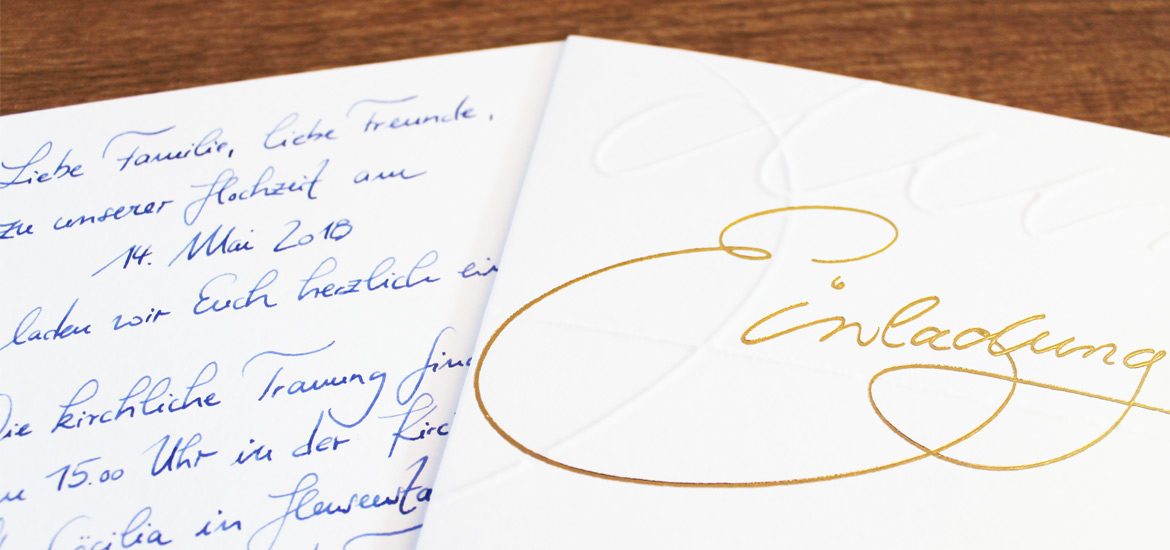 Liebe Familie, liebe Freunde,
zu unserer Hochzeit am
14. Mai 2018
laden wir Euch herzlich ein
Die kirchliche Trauung find
15.00 Uhr in der Kirc
Cäcilia in
Einladung